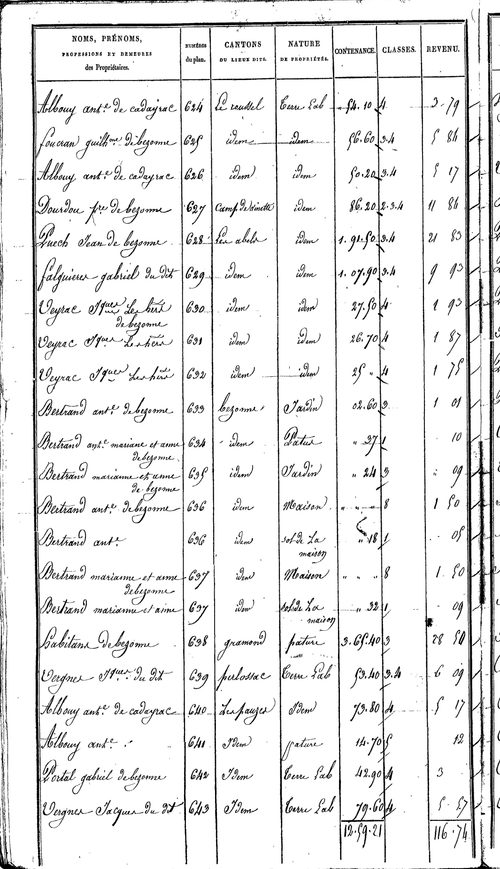 NOMS, PRÉNOMS, PROFESSIONS ET DEMEURES des Propriétaires. NUMÉROS du plan. CANTONS OU LIEUX DITS. NATURE DE PROPRIÉTÉS. CONTENANCE. CLASSES. REVENU.
Albouy ant.e de cadayrac 624 Le roussel Terre Lab „ 54.10 4 3 79
foucran guilhme de bezonne 625 idem idem 56.60 3.4 5 84
Albouy ant.e de cadayrac 626 idem idem 50.20 3.4 5 17
Dourdou pre de bezonne 627 Camp de idem 86.20 2.3.4 11 84
Puech Jean de bezonne 628 Les abels idem 1.91.50 3.4 21 83
falguieres gabriel du dit 629 idem idem 1.07.90 3.4 9 93
Veyrac Jques Les hers de bezonne 630 idem idem 27.50 4 1 93
Veyrac Jques Les hers 631 idem idem 26.70 4 1 87
Veyrac Jques Les hers 632 idem idem 25 „ 4 1 75
Bertrand ant.e de bezonne 633 bezonne Jardin 02.60 3 1 01
Bertrand ant.e mariane et anne de bezonne 634 idem Patus „ 37 1 10
Bertrand marianne et anne de bezonne 635 idem Jardin „ 24 3 „ 09
Bertrand ant.e de bezonne 636 idem Maison „ „ „ 8 1 50
Bertrand ant.e 636 idem sol de La maison „ 18 1 05
Bertrand marianne et anne de bezonne 637 idem Maison „ „ „ 8 1 50
Bertrand marianne et anne 637 idem sol de La maison „ 32 1 „ 09
habitans de bezonne 638 gramond pature 3.65.40 3 28 50
Vergnes Jques du dit 639 perlossac Terre Lab 53.40 3.4 6 09
Albouy ant.e de cadayrac 640 Les pauzes Idem 73.80 4 5 17
Albouy ant.e 641 Idem pature 14.70 5 12
Portal gabriel de bezonne 642 Idem Terre Lab 42.90 4 3
Vergnes Jacques du dit 643 Idem Terre Lab 79.60 4 5 57
12.59.21 116.74